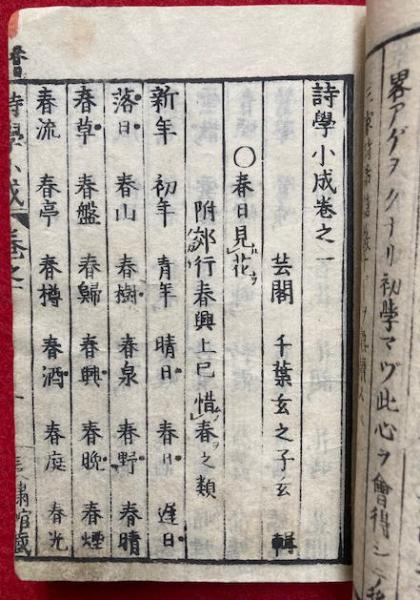 畧アゲヲクナリ初學マヅ此心ヲ會得シテ
詩學小成卷之一
芸閣 千葉玄之子玄 輯
〇春日見花
附郊行春興上巳惜春之類
新年 初年 青年 晴日 春日 遲日
落日 春山 春樹 春泉 春野 春晴
春草 春盤 春歸 春興 春晚 春煙
春流 春亭 春樽 春酒 春庭 春光
詩學小成 卷之一